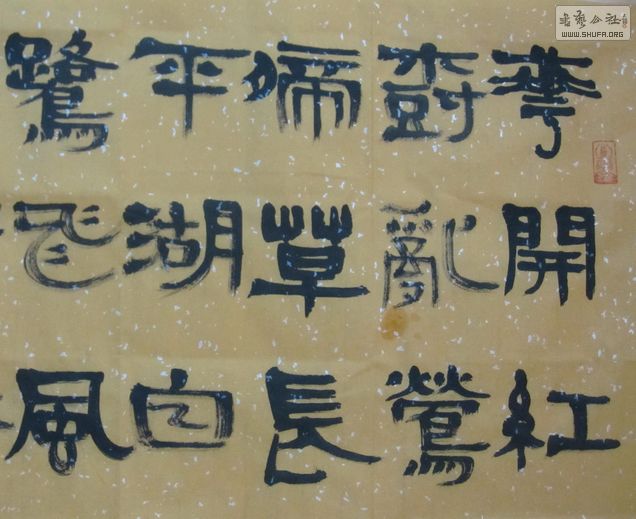 華開紅
樹亂鶯
啼草長
平湖白
鷺飛風
書藝公社
WWW.SHUFA.ORG